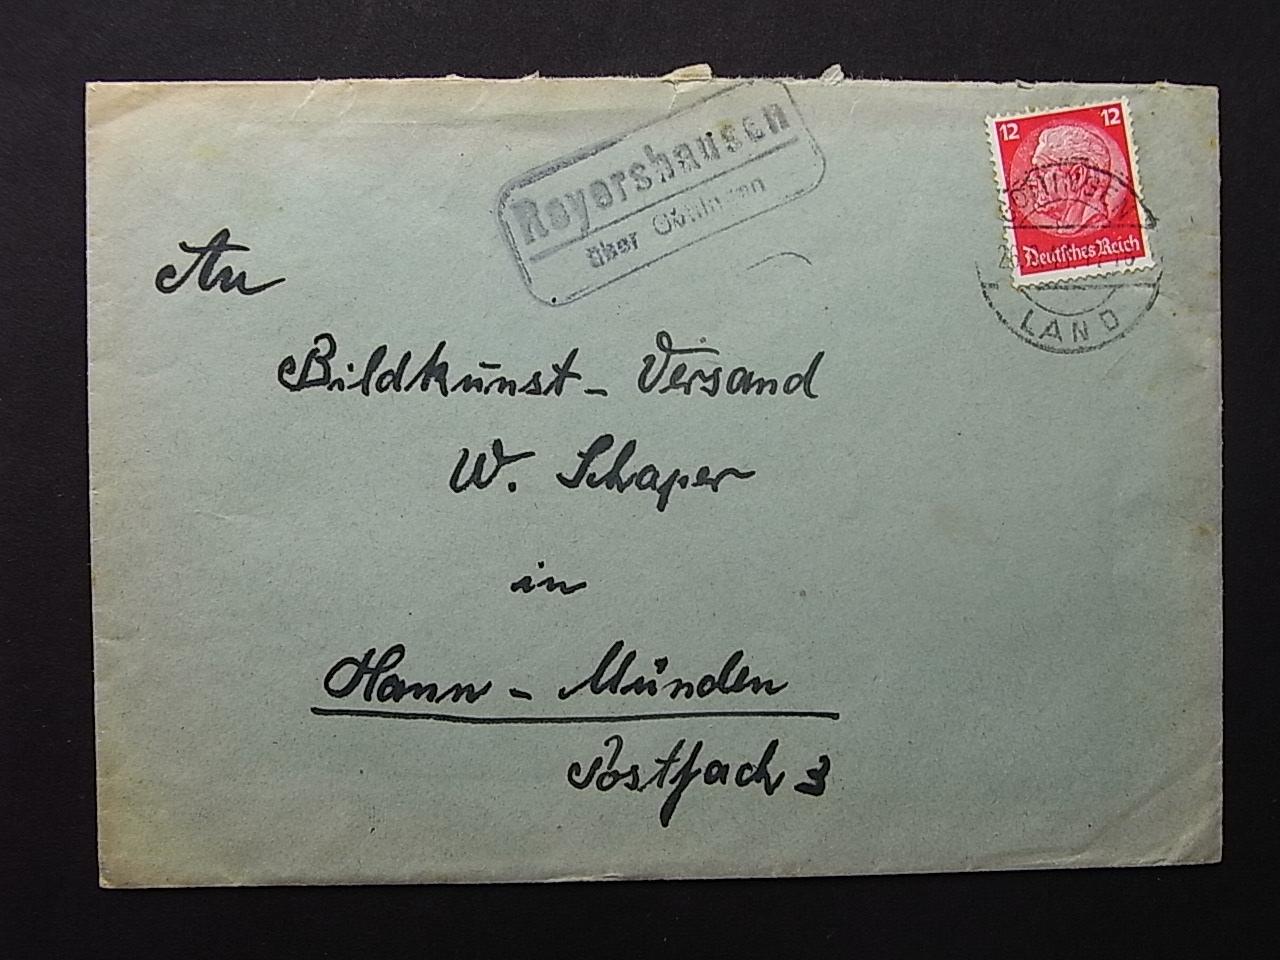 Reyershausen
über Göttingen
12 12
Deutsches Reich
LAND
An
Bildkunst - Versand
W. Schaper
in
Hann - Münden
Postfach 3